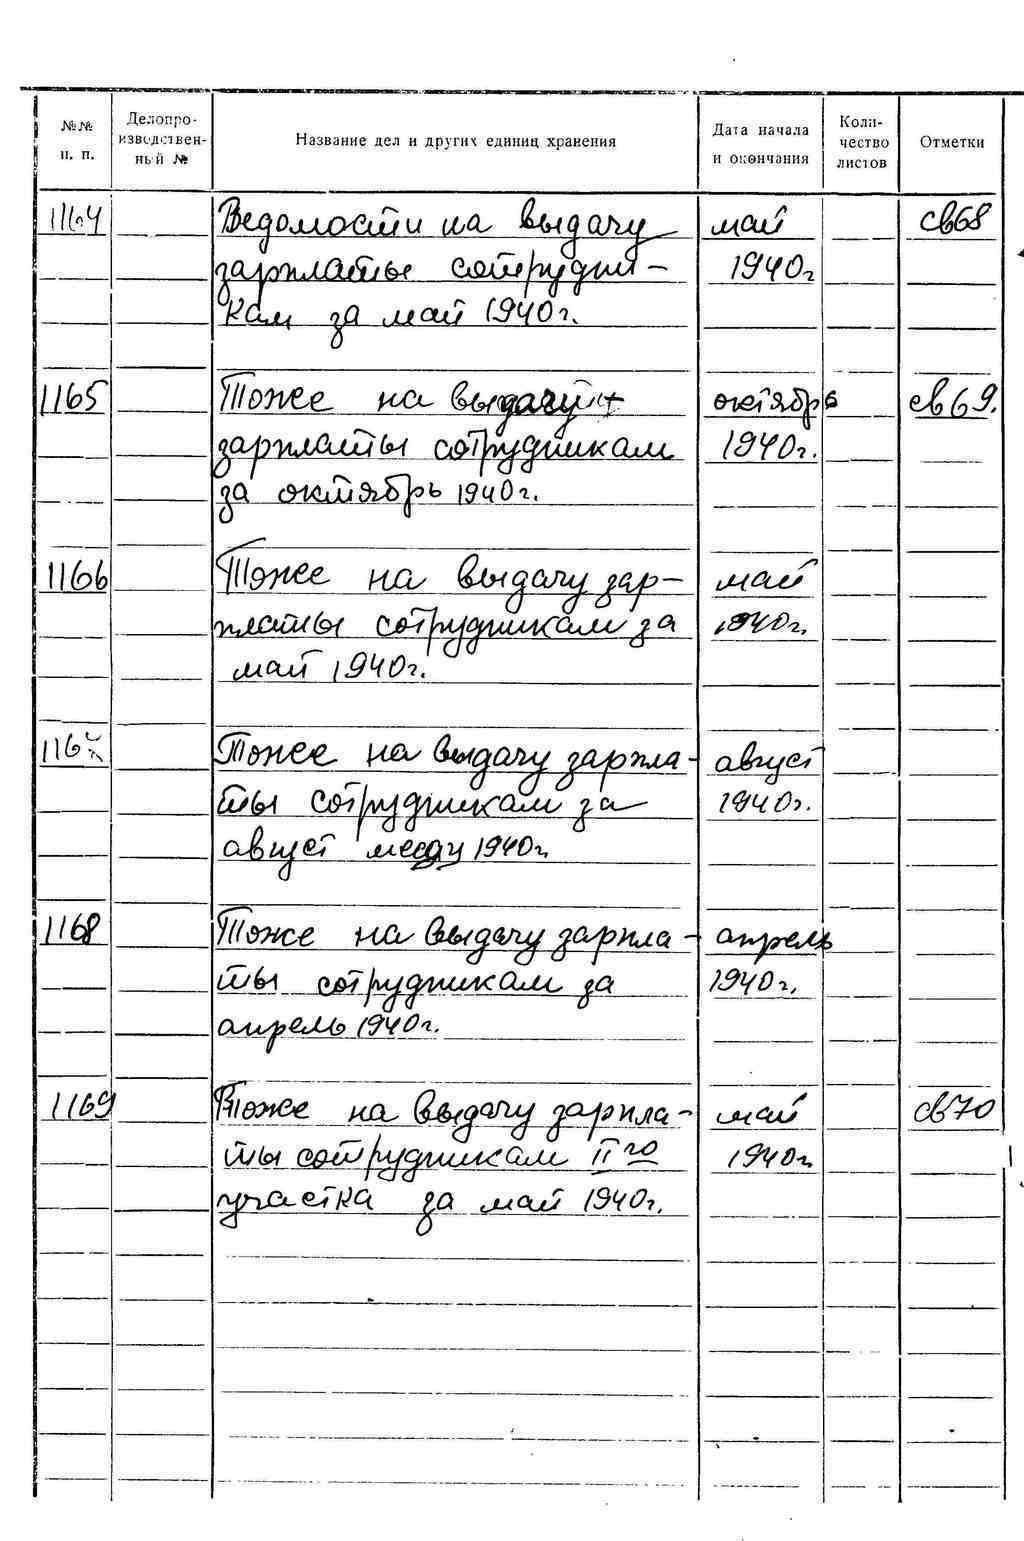 №№ п. п.
Делопро-
изводствен-
ный №
Название дел и других единиц хранения
Дата начала
и окончания
Коли-
чество
листов
Отметки
1164 Ведомости на выдачу май св68
зарплаты сотрудни- 1940г
кам за май 1940г.
1165 Тоже на выдачу октябрь св69.
зарплаты сотрудникам 1940г.
за октябрь 1940г.
1166 Тоже на выдачу зар- май
платы сотрудникам за 1940г.
май 1940г.
1167 Тоже на выдачу зарпла- август
ты сотрудникам за 1940г.
август 1940г.
1168 Тоже на выдачу зарпла- апрель
ты сотрудникам за 1940г.
апрель 1940г.
1169 Тоже на выдачу зарпла- май св70
ты сотрудникам II го 1940г
участка за май 1940г.